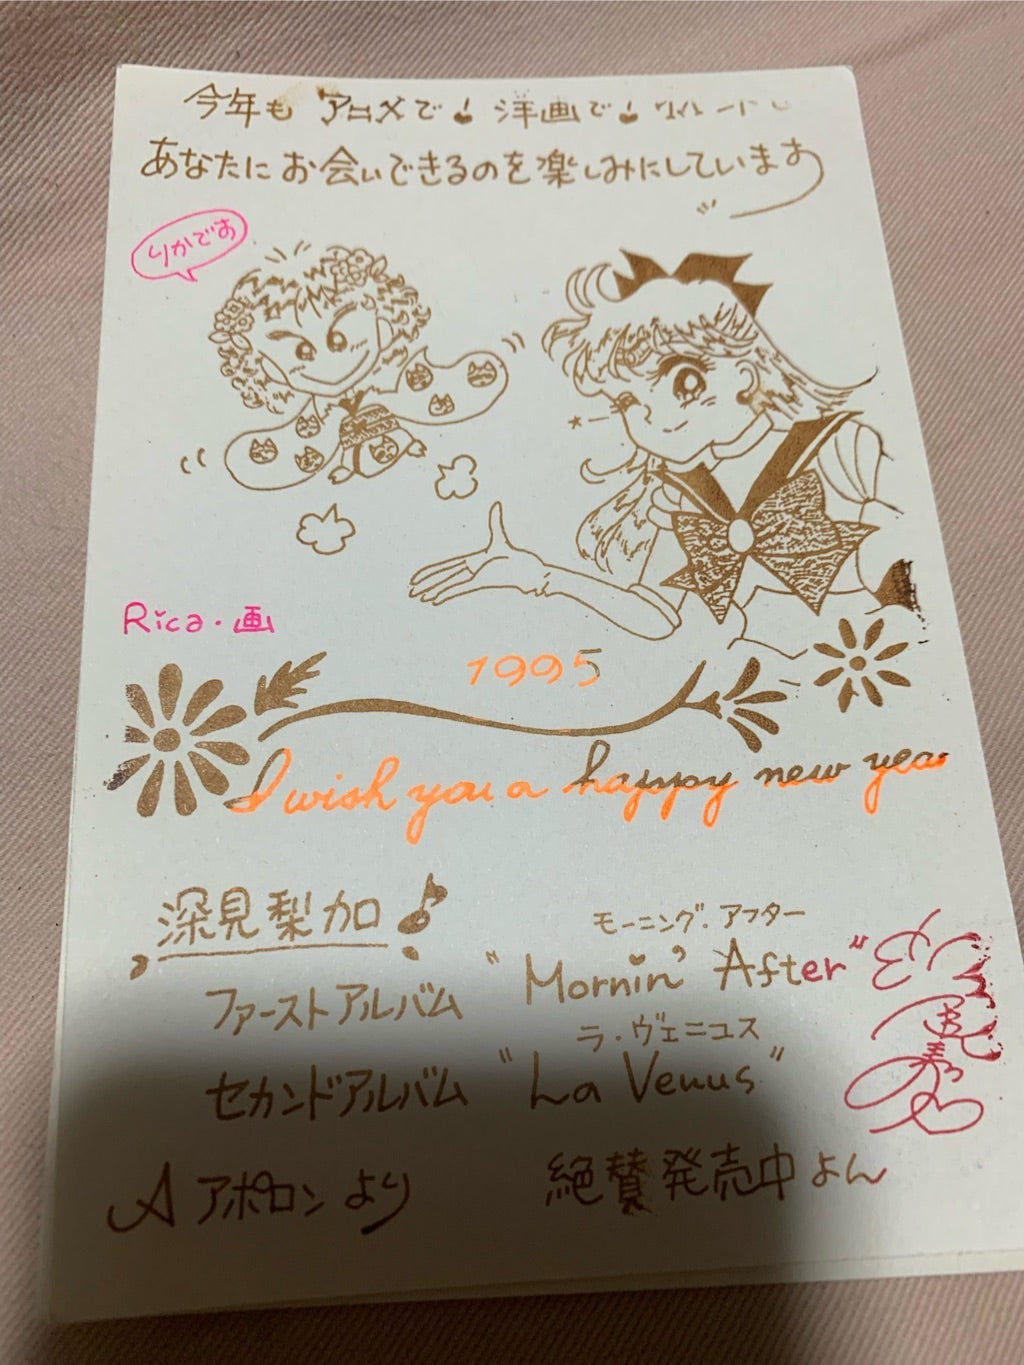 今年も アニメで! 洋画で!
あなたに お会いできるのを楽しみにしています
りかです
Rica・画
1995
I wish you a happy new year
深見梨加
モーニング・アフター
ファーストアルバム "Mornin' After"
ラ・ヴェニュス
セカンドアルバム "La Venus"
A アポロン より 絶賛発売中よん